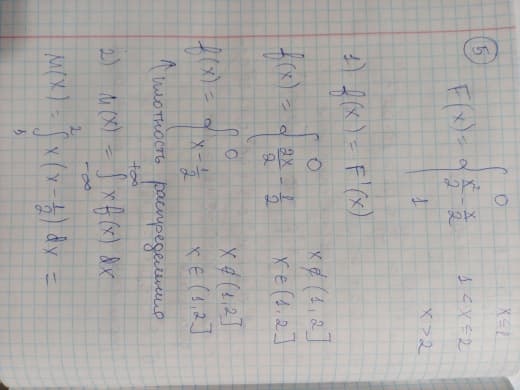 5
F(x) = { 0   x ≤ 1
x²/2 - x/2   1 < x ≤ 2
1   x > 2
1) f(x) = F'(x)
f(x) = { 0   x ∉ (1,2]
2x/2 - 1/2   x ∈ (1,2]
f(x) = { 0   x ∉ (1,2]
x - 1/2   x ∈ (1,2]
↑ плотность распределения
2) M(x) = ∫_{-∞}^{+∞} x f(x) dx
M(X) = ∫_1^2 x (x - 1/2) dx =